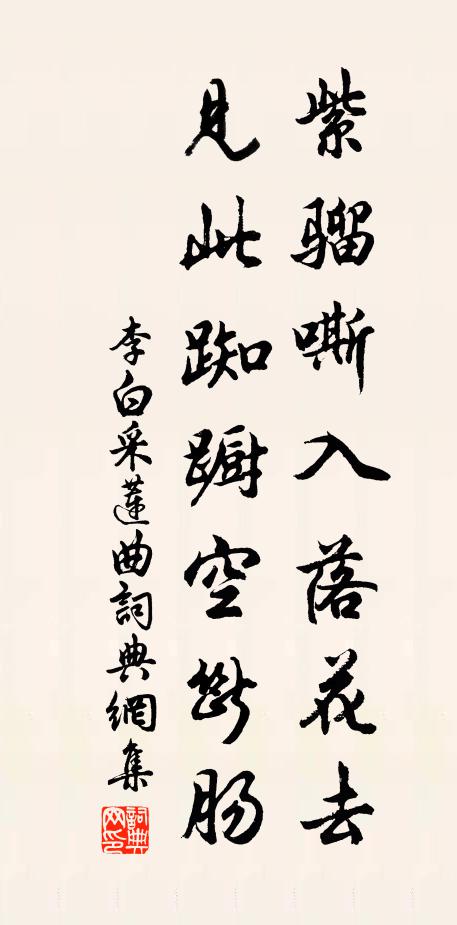 紫騮嘶入落花去
見此踟躕空斷腸
李白采蓮曲詞典網集
詞典
网印